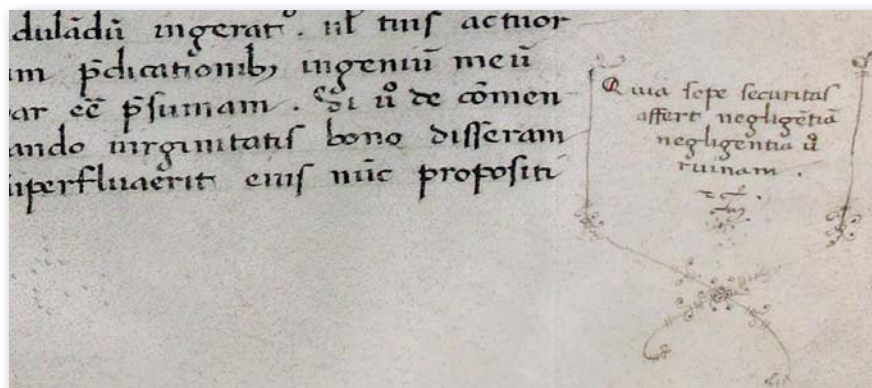 dulādū ingerat᷒. ul̄ tuis actuor
am p̄dicationib; ingeniū meū
ar eē p̄sumam. Sꝫ di uͦ de cōmen
ando uirginitatis bono disseram
uperfluaerit eius nūc propositi
Quia sepe securitas
affert negligētiā
negligentia uͦ
ruinam.